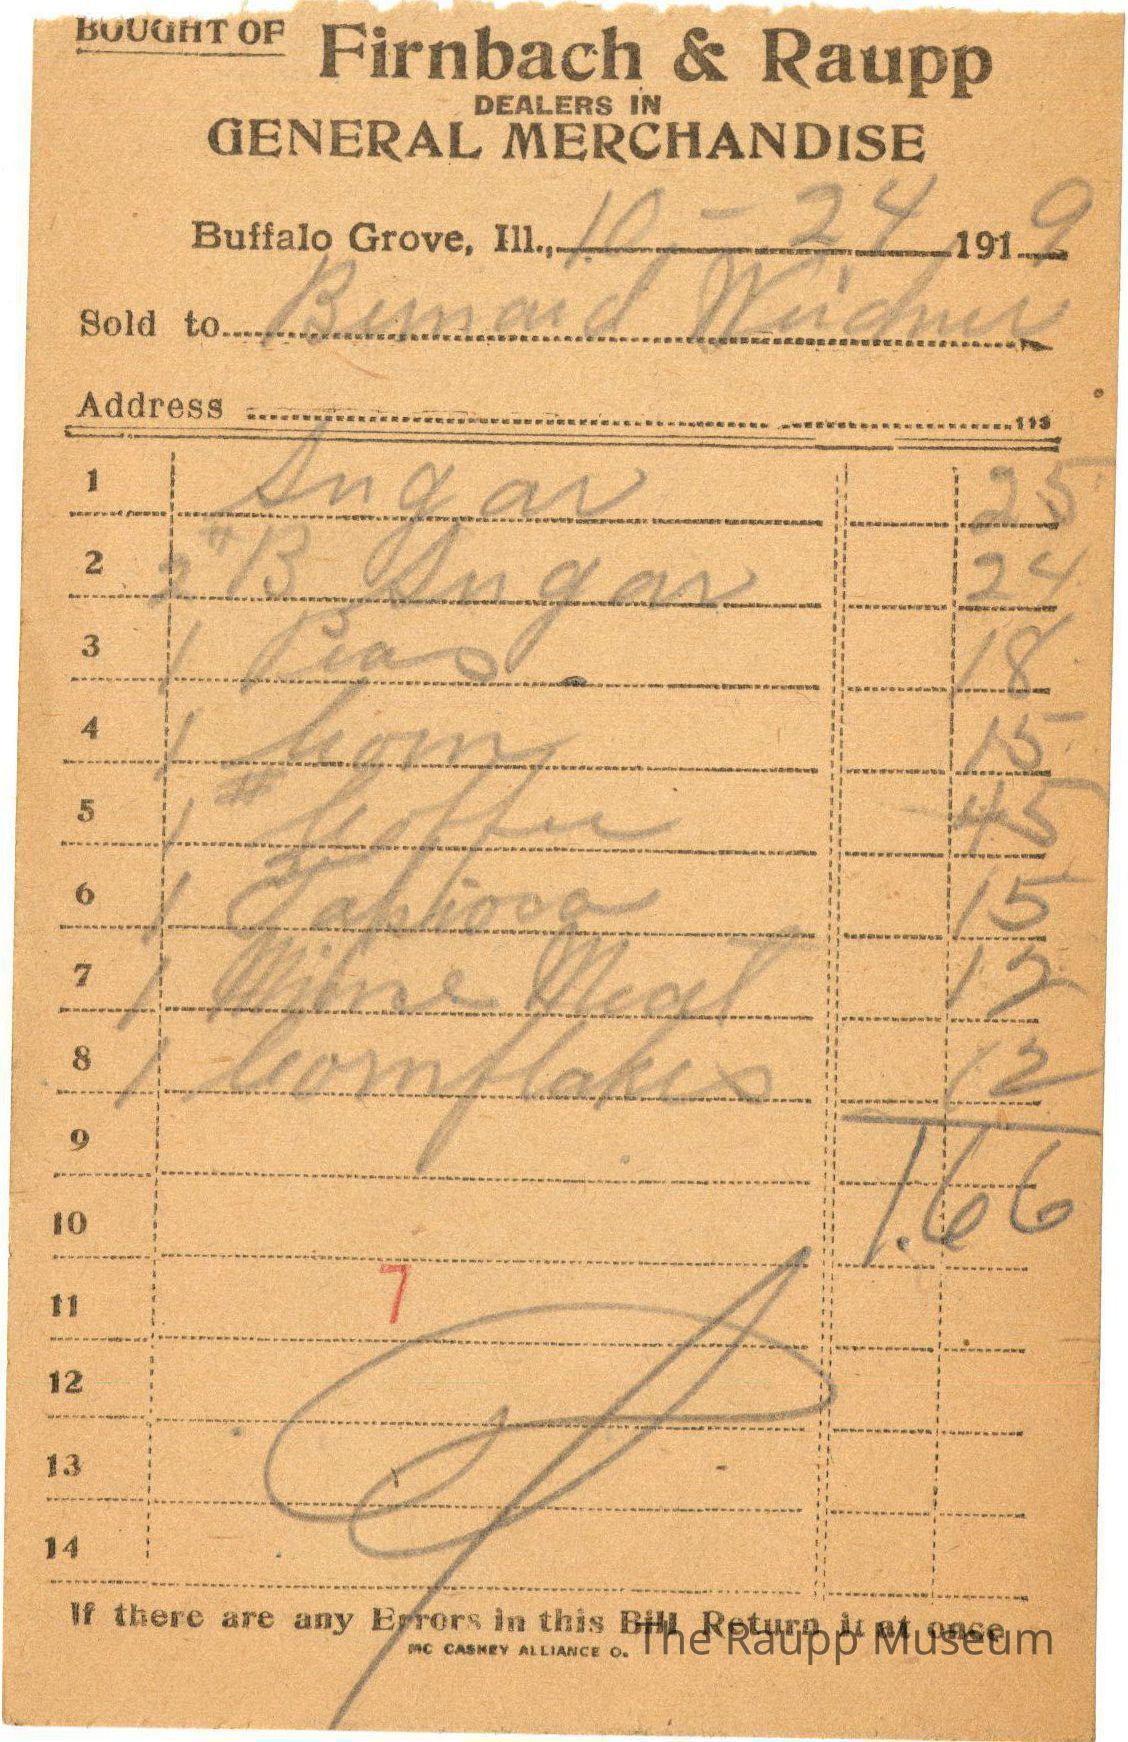 BOUGHT OF Firnbach & Raupp
DEALERS IN
GENERAL MERCHANDISE
Buffalo Grove, Ill., 10 - 24 1919
Sold to Bernard Weidner
Address
113
1 Sugar 25
2 2 # B Sugar 24
3 1 Peas 18
4 1 Corn 15
5 1 # Coffee 45
6 1 Tapioca 15
7 1 Mince Meat 12
8 1 Cornflakes 12
9 1.66
10
7
11
12
13
14
If there are any Errors in this Bill Return it at once
MC CASKEY ALLIANCE O.
The Raupp Museum